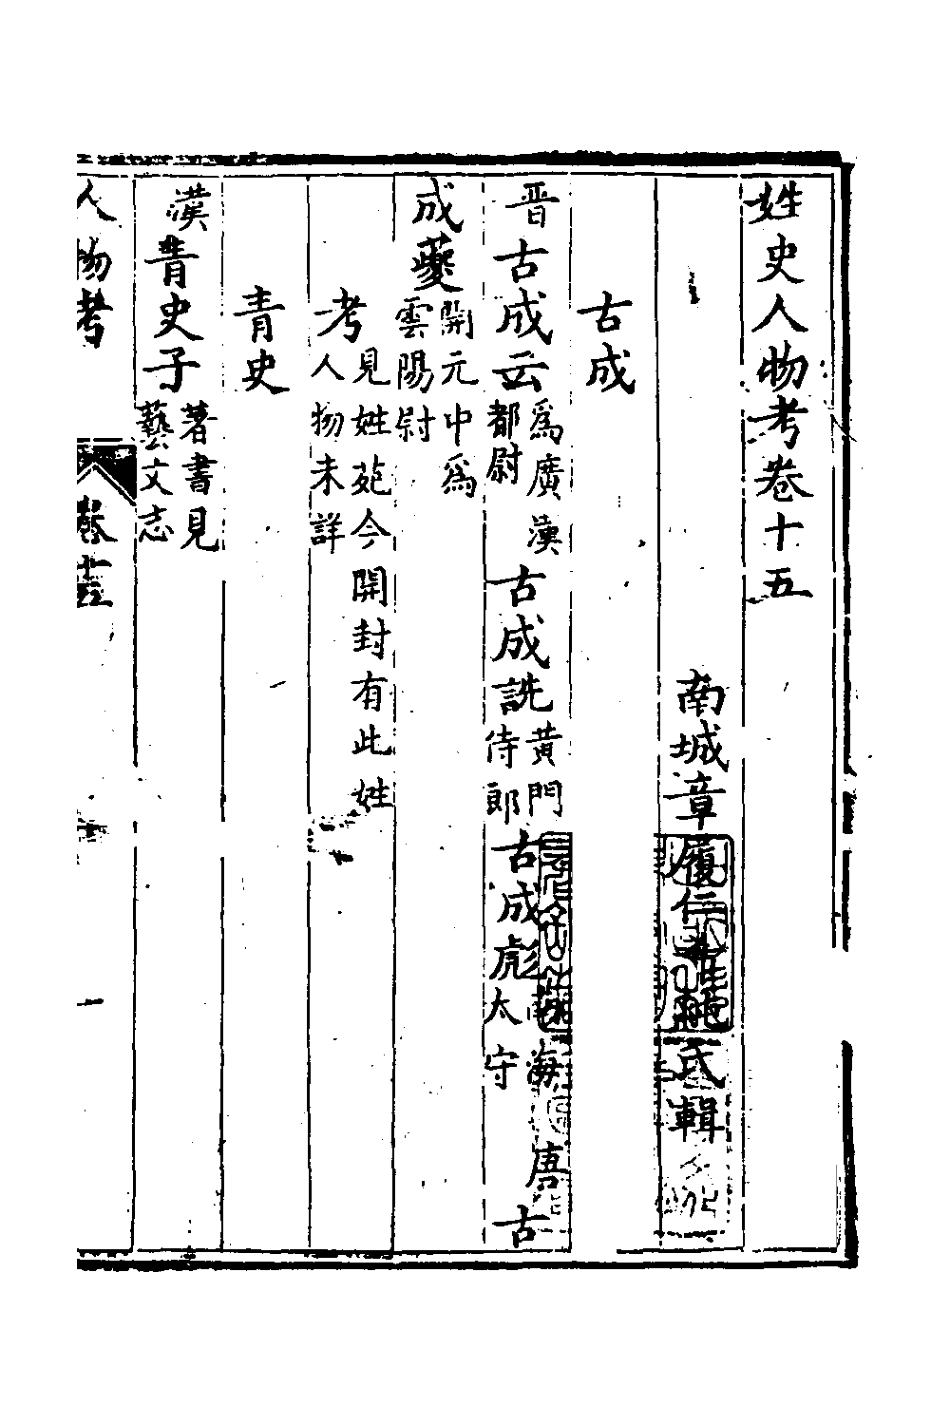 姓史人物考卷十五
南城章履仁 氏輯
古成
晋古成云為廣漢都尉古成詵黃門侍郎古成彪 海太守唐古
成䕫開元中為雲陽尉
考見姓苑今開封有此姓人物未詳
青史
漢青史子著書見藝文志
人物考 卷十五